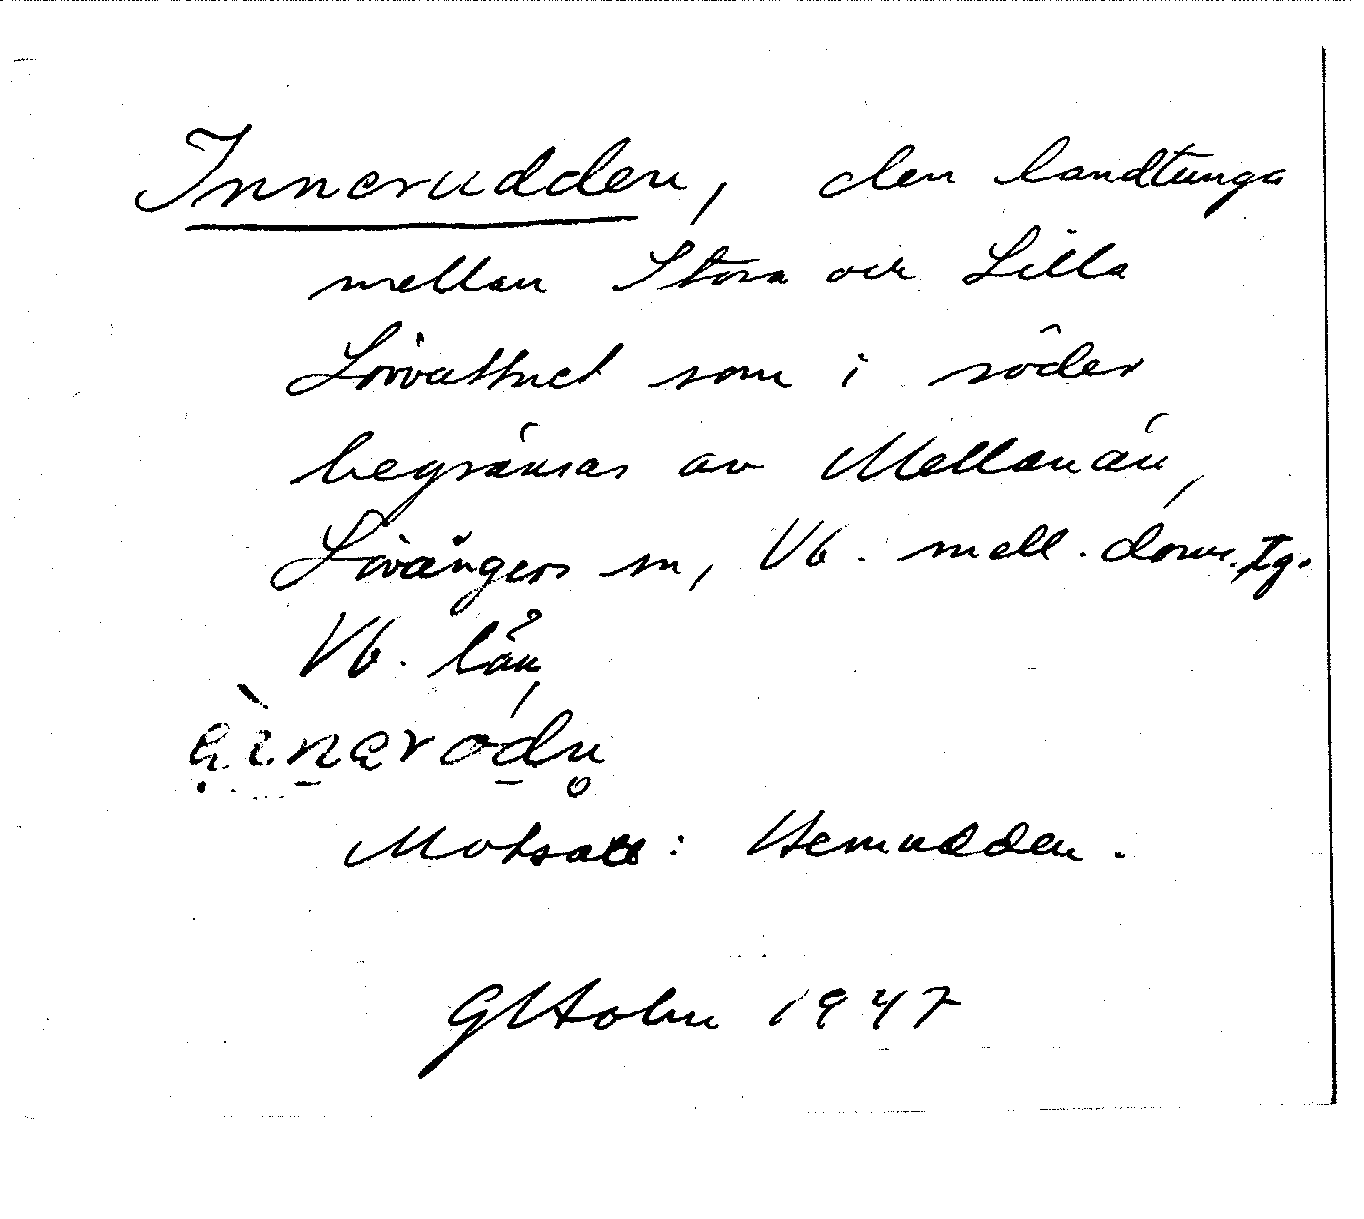 Innerudden, den landtunga
mellan Stora och Lilla
Lövvattnet som i söder
begränsas av Mellanån,
Lövångers sn, Vb. mell. doms. Tg.
Vb. län,
Motsats: Hemudden.
G Holm 1947